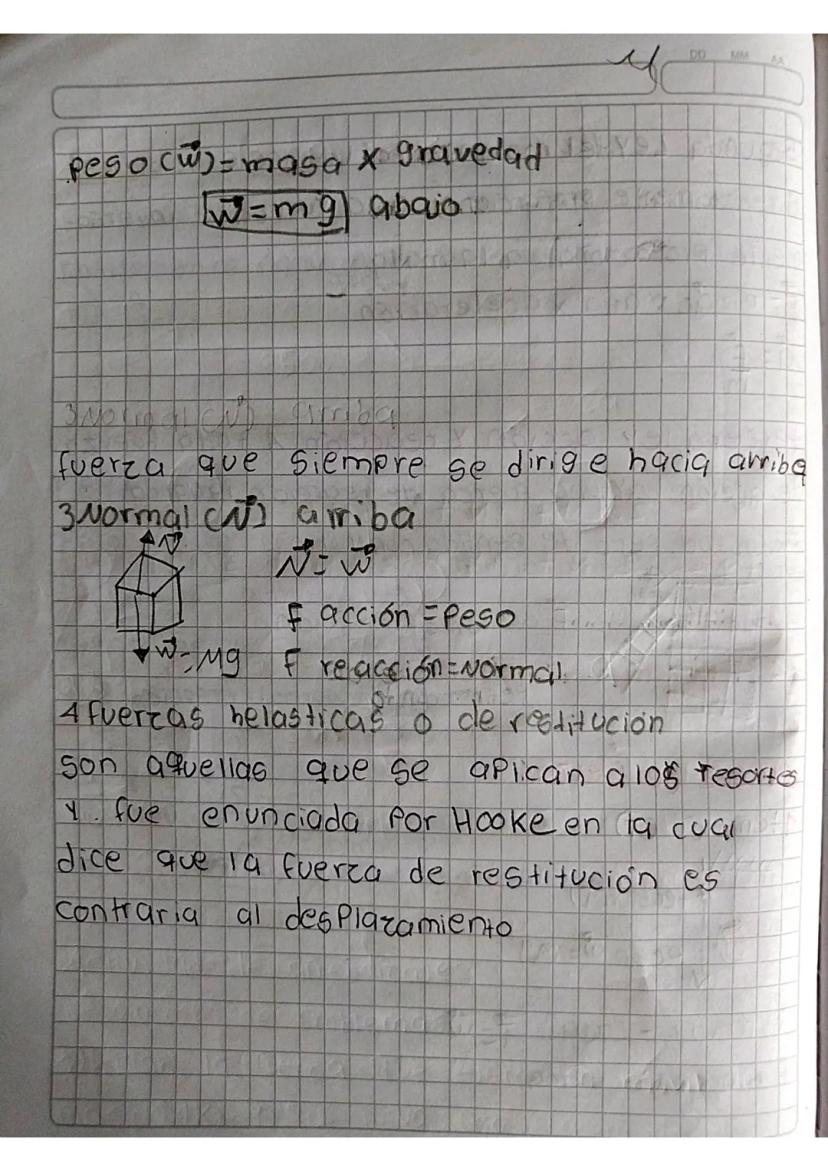 DD MM AA
peso (w⃗) = masa x gravedad
w⃗ = mg abajo
3 Normal (N⃗) arriba
fuerza que siempre se dirige hacia arriba
3 Normal (N⃗) arriba
N⃗
N⃗ = w⃗
F acción = Peso
w⃗ = Mg F reacción = Normal
4 fuerzas helasticas o de restitución
son aquellas que se aplican a los resortes
y. fue enunciada Por Hooke en la cual
dice que la fuerza de restitución es
contraria al desplazamiento